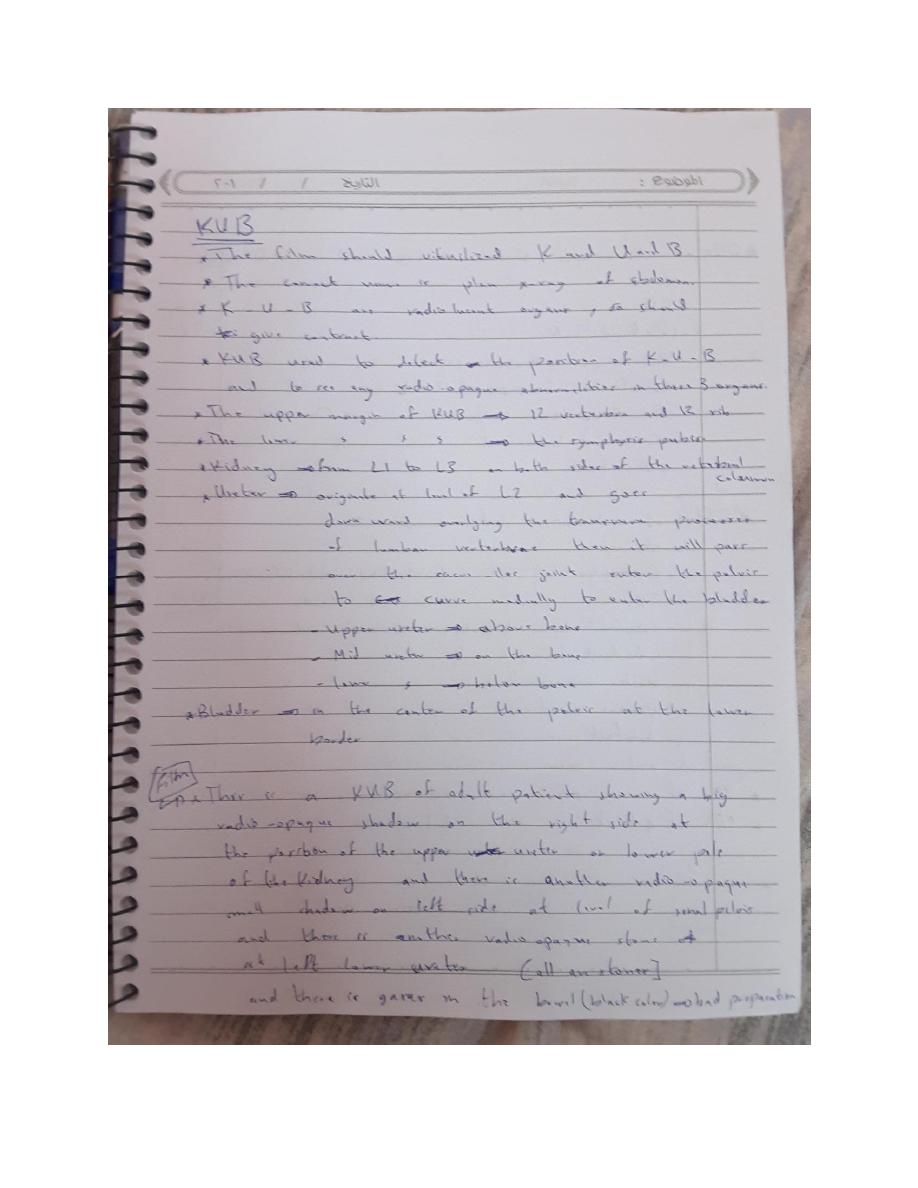 الموضوع : التاريخ / / ٢٠١
KUB
* The film should visualized K and U and B
* The correct name is plan x-ray of abdomen.
* K - U - B are radiolucent organs, so should
give contrast.
* KUB used to detect the position of K-U-B
and to see any radio-opaque abnormalities in these 3 organs.
* The upper margin of KUB → 12 vertebra and 12 rib
* The lower , , , → the symphysis pubis
* Kidney → from L1 to L3 on both sides of the vertebral
colummn
* Ureter → originate at level of L2 and goes
down ward overlying the transverse processes
of lumbar vertebrae then it will pass
over the joint enter the pelvis
to curve medially to enter the bladder
- Upper ureter → above bone
- Mid ureter → on the bone
- lower , → below bone
* Bladder → in the center of the pelvis at the lower
border
Film
* This is a KUB of adult patient showing a big
radio-opaque shadow on the right side at
the position of the upper ureter or lower pole
of the Kidney and there is another radio-opaque
small shadow on left side at level of renal pelvis
and there is another radio opaque stone
at left lower ureter [all are stones]
and there is gases in the bowel (black color) → bad preparation